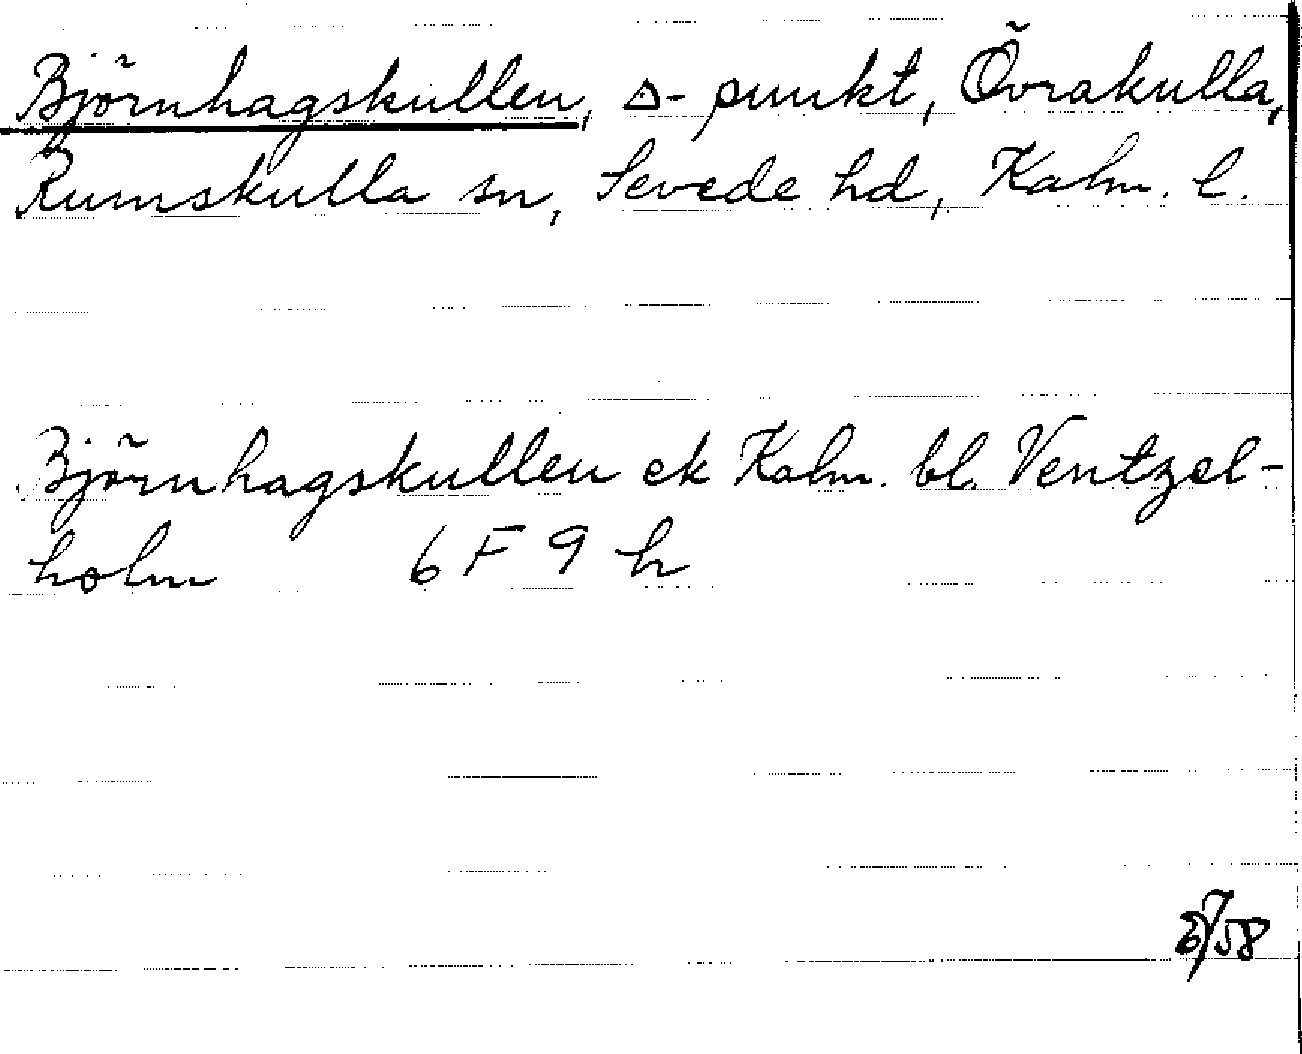 Björnhagskullen, △-punkt, Övrakulla,
Rumskulla sn, Sevede hd, Kalm. l.
Björnhagskullen ek Kalm. bl. Ventzel-
holm 6 F 9 h